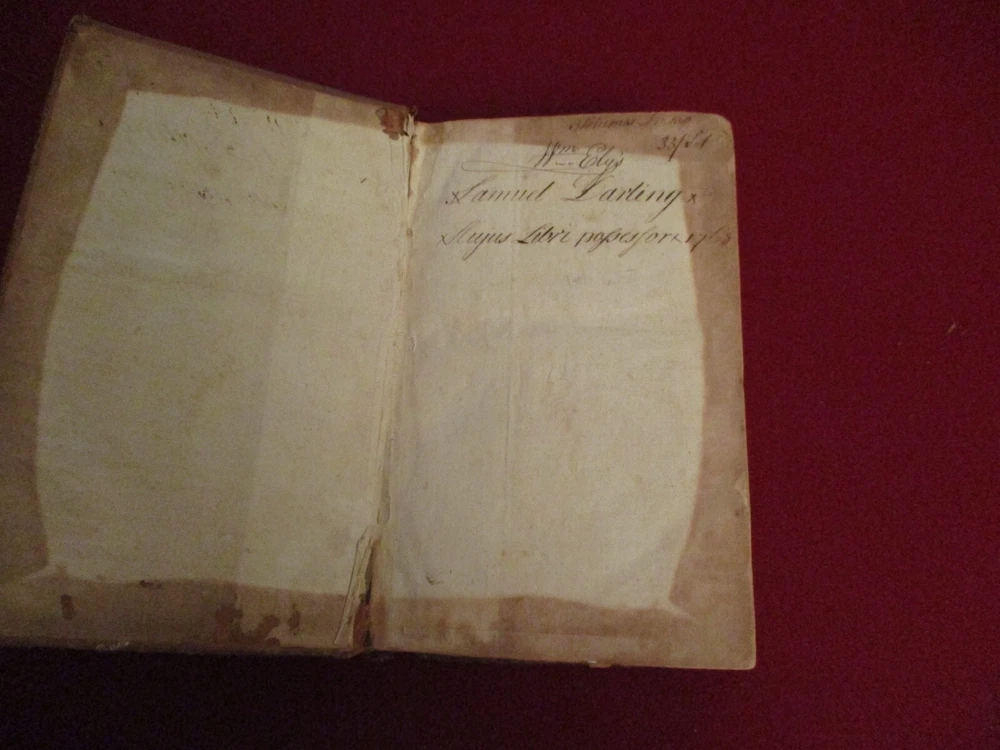 33/
Wm Ely's
Samuel Darling
Hujus Libri possessor 1768